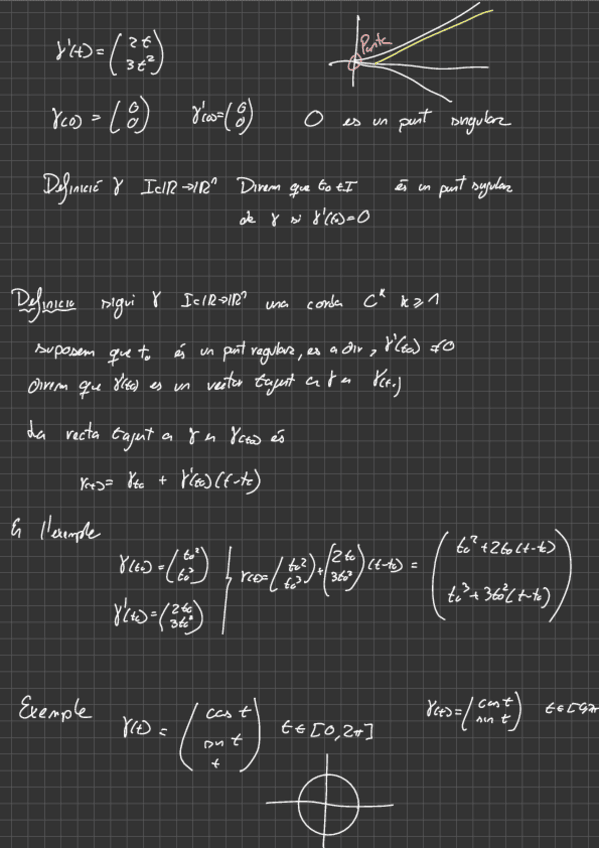 γ'(t) = (2t 3t²)
Punta
γ(0) = (0 0) γ'(0) = (0 0) 0 es un punt singular
Definició γ I⊂ℝ→ℝⁿ Direm que t₀∈I és un punt singular
de γ si γ'(t₀)=0
Definicio sigui γ I⊂ℝ→ℝⁿ una corba Cᵏ k≥1
suposem que t₀ és un punt regular, es a dir, γ'(t₀)≠0
direm que γ'(t₀) es un vector tagent a γ en γ(t₀)
La recta tagent a γ en γ(t₀) és
r(t) = γ(t₀) + γ'(t₀)(t-t₀)
En l'exemple
γ(t₀) = (t₀² t₀³) r(t) = (t₀² t₀³) + (2t₀ 3t₀²)(t-t₀) = (t₀²+2t₀(t-t₀) t₀³+3t₀²(t-t₀))
γ'(t₀) = (2t₀ 3t₀²)
Exemple γ(t) = (cos t sin t t) t∈[0,2π] γ(t) = (cos t sin t)